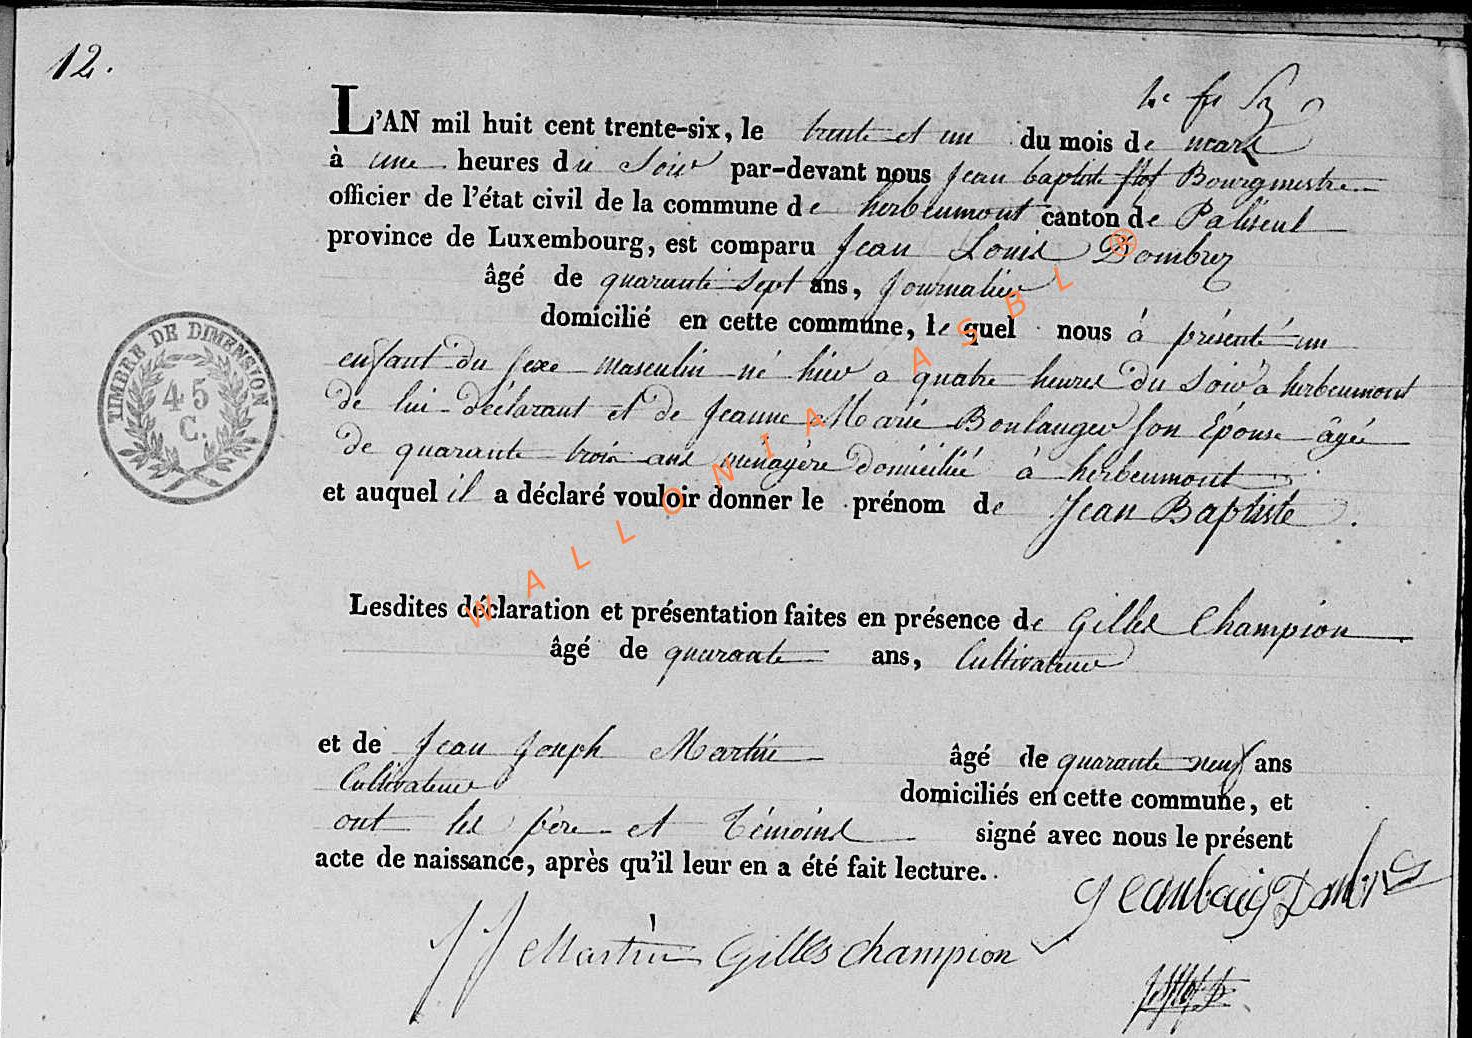 12.
L'AN mil huit cent trente-six, le trente et un du mois de mars
à une heures du Soir par-devant nous Jean baptiste flot Bourgmestre
officier de l'état civil de la commune de herbeumont canton de Paliseul
province de Luxembourg, est comparu Jean Louis Dombrez
âgé de quarante Sept ans, Journalier
domicilié en cette commune, lequel nous à présenté un
enfant du sexe masculin né hier a quatre heures du Soir à herbeumont
de lui déclarant et de Jeanne Marie Boulanger son Épouse âgée
de quarante trois ans ménagère domiciliée à herbeumont
et auquel il a déclaré vouloir donner le prénom de Jean Baptiste.
Lesdites déclaration et présentation faites en présence de Gilles Champion
âgé de quarante ans, Cultivateur
et de Jean Joseph Martin âgé de quarante neuf ans
Cultivateur domiciliés en cette commune, et
ont les père et témoins signé avec nous le présent
acte de naissance, après qu'il leur en a été fait lecture.
JJ Martin Gilles Champion
TIMBRE DE DIMENSION
45
C.
WALLONIA ASBL